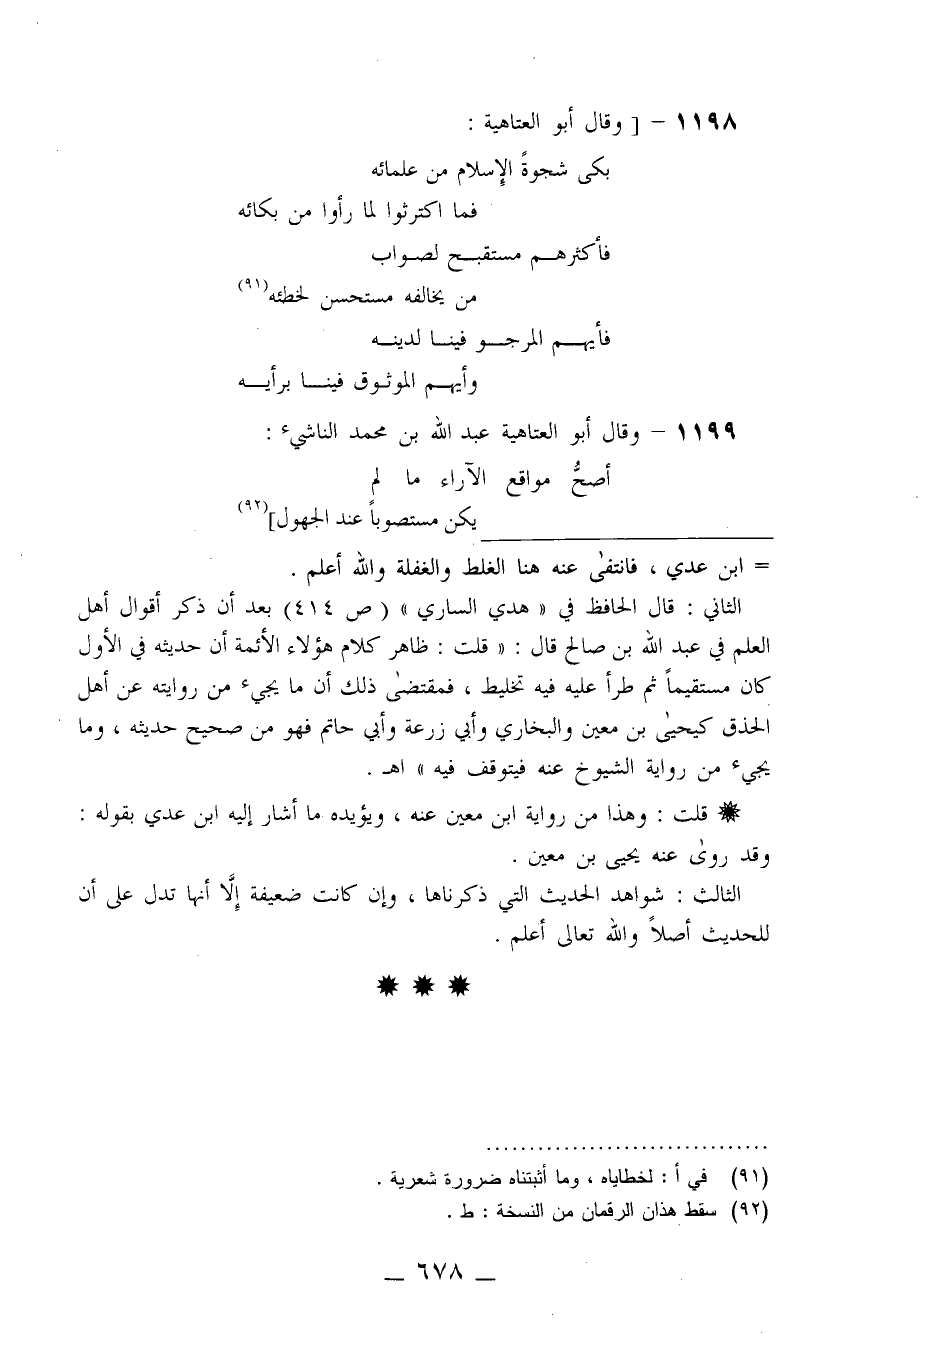 ١١٩٨ – [ وقال أبو العتاهية :
بكى شجوةً الإِسلام من علمائه
فما اكترثوا لما رأوا من بكائه
فأكثرهــم مستقبــح لصــواب
من يخالفه مستحسن لخطئه(٩١)
فأيهــم المرجــو فينــا لدينــه
وأيهــم الموثــوق فينــا برأيــه
١١٩٩ – وقال أبو العتاهية عبد الله بن محمد الناشيء :
أصحُّ مواقع الآراء ما لم
يكن مستصوباً عند الجهول](٩٢)
= ابن عدي ، فانتفىٰ عنه هنا الغلط والغفلة والله أعلم .
الثاني : قال الحافظ في « هدي الساري » ( ص ٤١٤) بعد أن ذكر أقوال أهل
العلم في عبد الله بن صالح قال : « قلت : ظاهر كلام هؤلاء الأئمة أن حديثه في الأول
كان مستقيماً ثم طرأ عليه فيه تخليط ، فمقتضىٰ ذلك أن ما يجيء من روايته عن أهل
الحذق كيحيىٰ بن معين والبخاري وأبي زرعة وأبي حاتم فهو من صحيح حديثه ، وما
يجيء من رواية الشيوخ عنه فيتوقف فيه » اهـ .
✹ قلت : وهذا من رواية ابن معين عنه ، ويؤيده ما أشار إليه ابن عدي بقوله :
وقد روىٰ عنه يحيى بن معين .
الثالث : شواهد الحديث التي ذكرناها ، وإن كانت ضعيفة إلَّا أنها تدل على أن
للحديث أصلاً والله تعالى أعلم .
✹ ✹ ✹
................................
(٩١) في أ : لخطاياه ، وما أثبتناه ضرورة شعرية .
(٩٢) سقط هذان الرقمان من النسخة : ط .
_ ٦٧٨ _